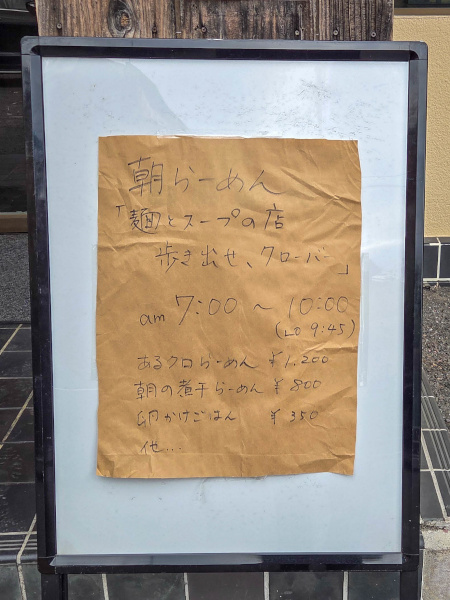 朝らーめん
「麺とスープの店
歩き出せ、クローバー」
am 7:00 〜 10:00
(LO 9:45)
あるクロらーめん ¥1,200
朝の煮干らーめん ¥800
卵かけごはん ¥350
他...